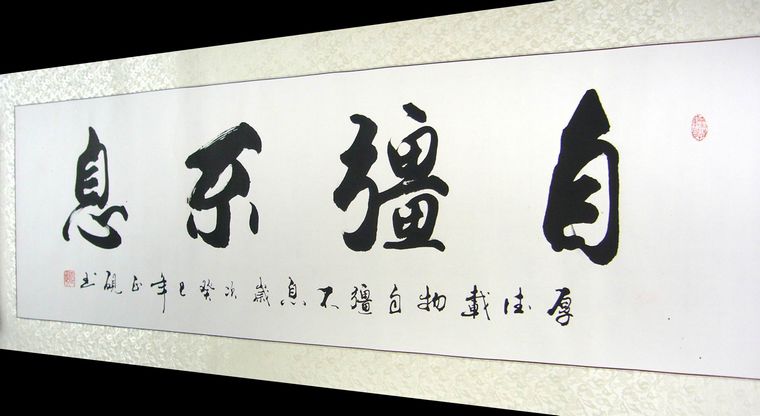 自彊不息
厚德載物自彊不息歲次癸巳年正硯書